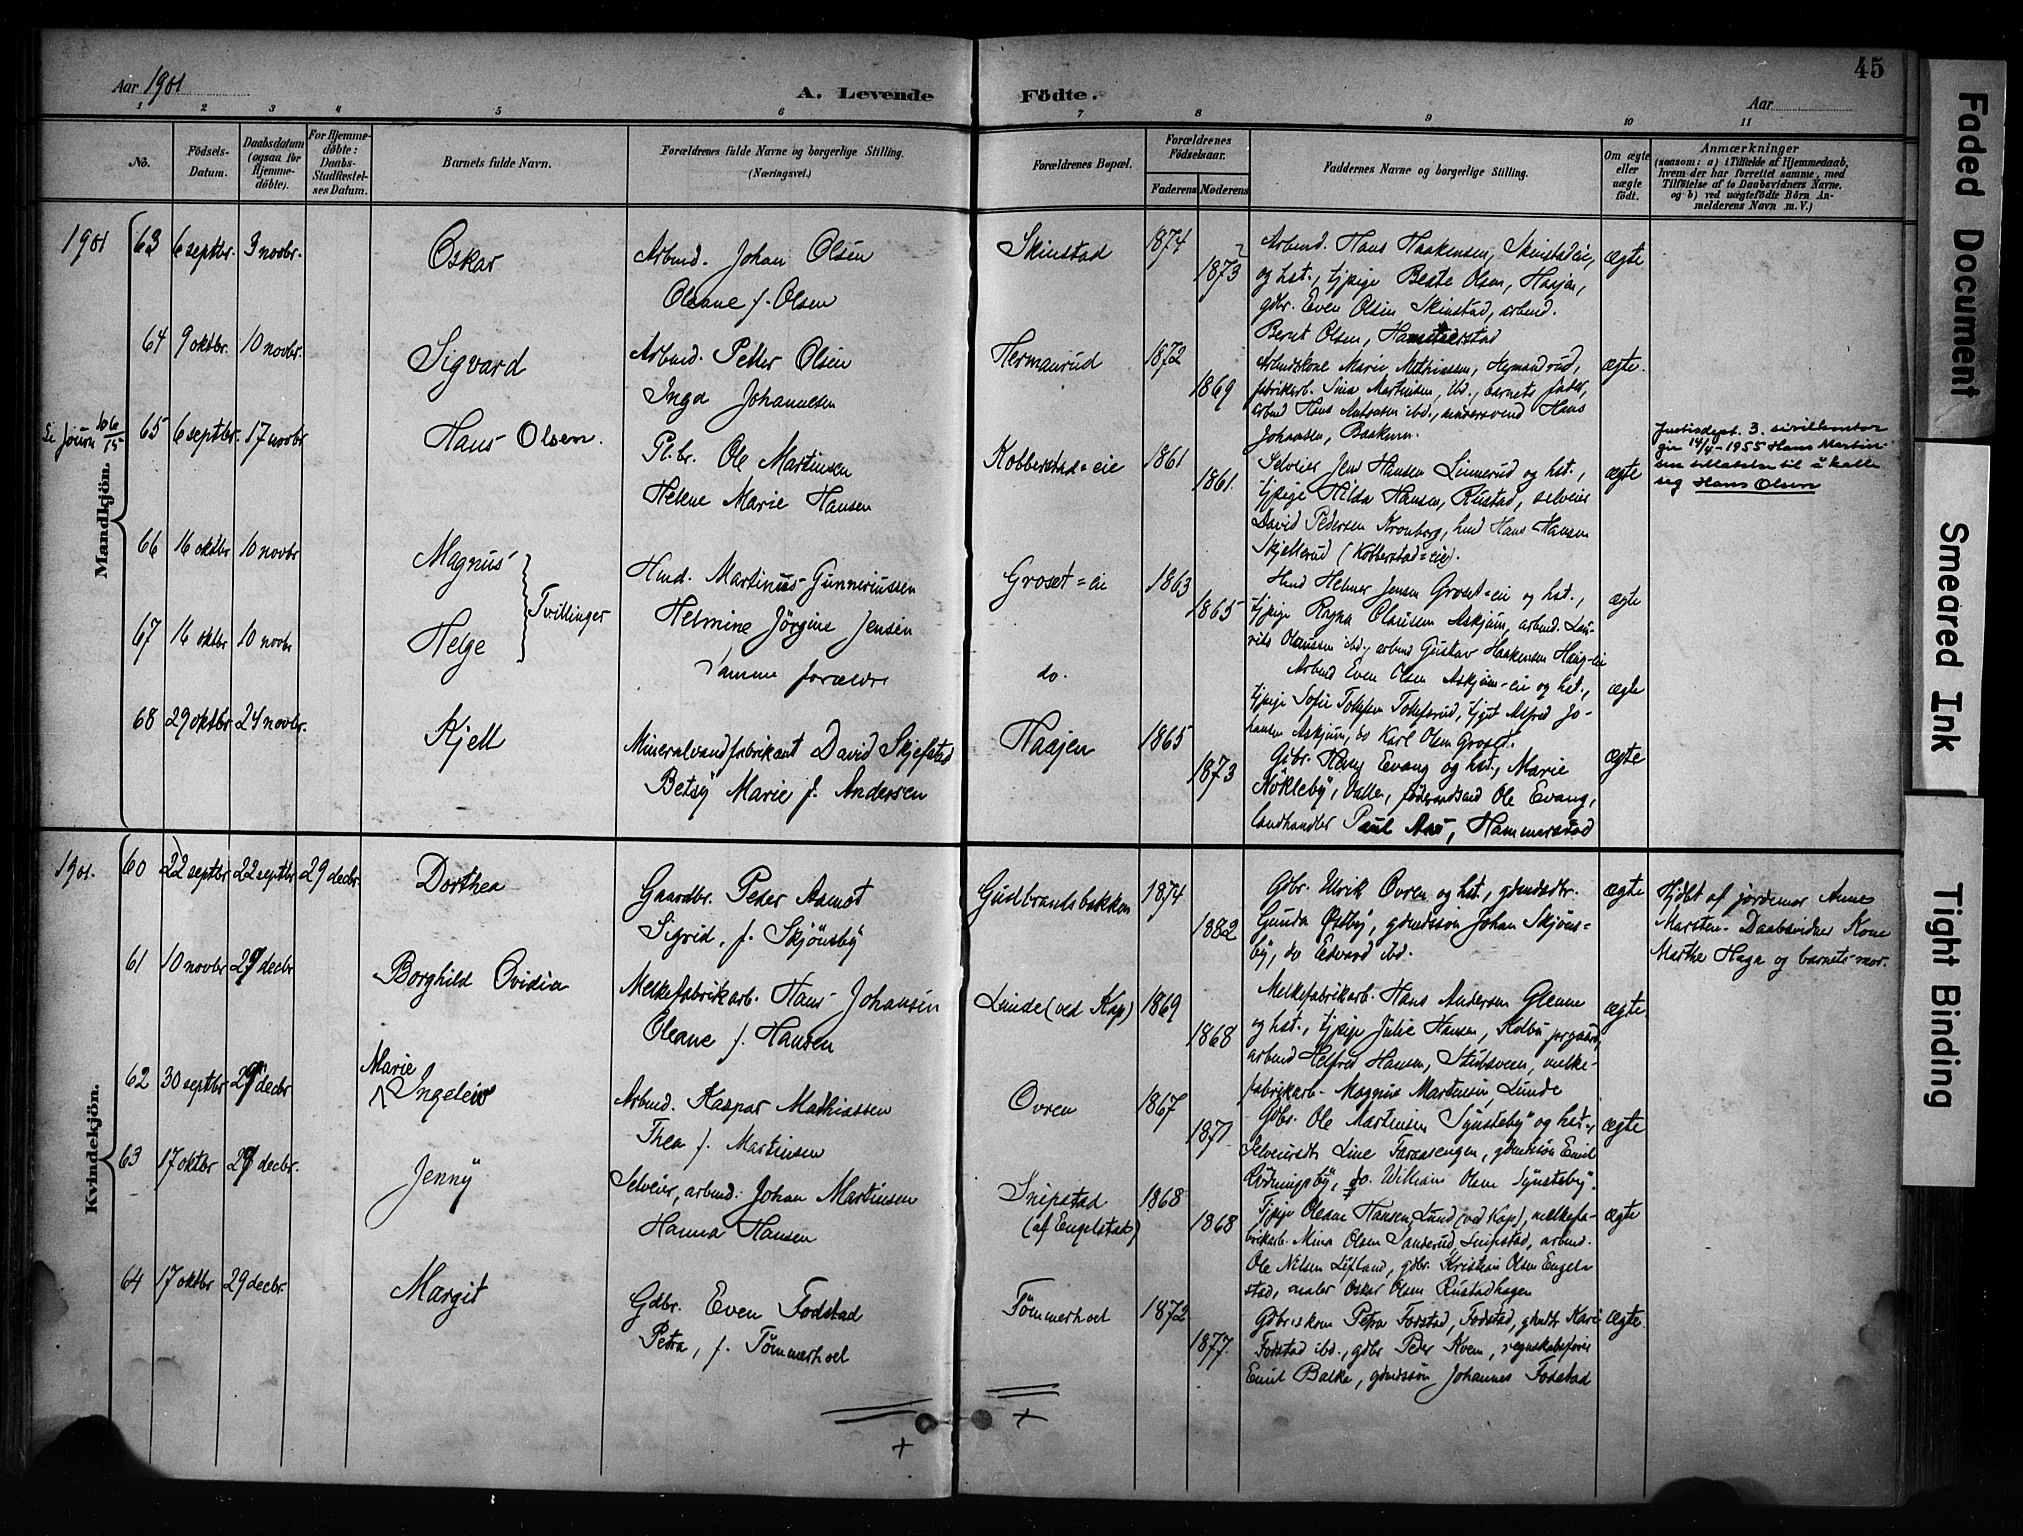 Aar 1901
A. Levende Födte.
45
Aar
1 2 3 4 5 6 7 8 9 10 11
No.
Födsels-Datum.
Daabsdatum (ogsaa for Hjemme-döbte).
For Hjemme-döbte: Daabs-Stadfæstel-ses Datum.
Barnets fulde Navn.
Forældrenes fulde Navne og borgerlige Stilling. (Næringsvei.)
Forældrenes Bopæl.
Forældrenes Födselsaar.
Faderens Moderens
Faddernes Navne og borgerlige Stilling.
Om ægte eller uægte födt.
Anmærkninger
(saasom: a) i Tilfælde af Hjemmedaab,
hvem der har forrettet samme, med
Tilföielse af to Daabsvidners Navne,
og b) ved uægtefödte Börn An-
melderens Navn m. V.)
Mandkjön.
1901 63 6 septbr. 3 novbr. Oskar
Arbmd. Johan Olsen
Oleane f. Olsen
Skinstad 1874 1873
Arbmd. Hans Haakensen, Skinstadeie,
og hst., tjpige Beate Olsen, Haajen,
gdbr. Even Olsen Skinstad, arbmd.
Bernt Olsen, Hammerstad
ægte
64 9 oktbr. 10 novbr. Sigvard
Arbmd. Petter Olsen
Inga Johannesen
Hermanrud 1872 1869
Arbmdskone Marie Mathiassen, Hermanrud,
fabrikarb. Sina Martinsen, ibd., barnets fader,
arbmd Hans Antonsen ibd., Hans
Johansen,
ægte.
Se Journ 66/15 65 6 septbr. 17 novbr Hans Olsen.
Pl.br. Ole Martinsen
Helene Marie Hansen
Kobberstad=eie 1861 1861.
Selveier Jens Hansen Linnerud og hst.,
tjpige Hilda Hansen, Rustad, selveier
David Pedersen Kronborg, hmd Hans Hansen
Skjellerud (Kobberstad=eie).
ægte
Justisdept. 3. sivilkontor
gir 14/4-1955 Hans Martin-
sen tillatelse til å kalle
seg Hans Olsen
66 16 oktbr 10 novbr Magnus
Tvillinger
Hmd. Martinus Gunneriussen
Helmine Jörgine Jensen
Groset=eie 1863 1865
Hmd Helmer Jensen Groset=eie og hst.,
tjpige Ragna Olaussen Askjum, arbmd. Lau-
rits Olaussen ibd., arbmd Gustav Haakensen Haug-eie
ægte
67 16 oktbr 10 novbr Helge
Samme forældre
do.
Arbmd Even Olsen Askjum-eie og hst.,
tjpige Sofie Tollefsen Tollefsrud, tjgut Alfred Jo-
hansen Askjum, do Karl Olsen Groset.
ægte
68 29 oktbr 24 novbr. Kjell
Mineralvandfabrikant David Skjefstad
Betsy Marie f. Andersen
Haajen 1865 1873
Gdbr. Hans Evang og hst., Marie
Nökleby, Valle, föderaadsmd Ole Evang,
landhandler Paul Aas, Hammerstad
ægte
Kvindekjön.
1901. 60 22 septbr 22 septbr 29 decbr. Dorthea
Gaardbr. Peder Aamot
Sigrid, f. Skjönsby
Gudbrandsbakken 1874 1882
Gdbr. Ulrik Ovren og hst., gdmdsdtr.
Gunda Østby, gdmdssøn Johan Skjöns-
by, do Edvard ibd.
ægte
Hjdbt af jordemor Anne
Marsten. Daabsvidner Kone
Marthe Haga og barnets mor.
61 10 novbr 29 decbr Borghild Ovidia
Melkefabrikarb. Hans Johansen
Oleane f. Hansen
Lunde (ved Kap) 1869 1868
Melkefabrikarb. Hans Andersen Glemme
og hst., tjpige Julie Hansen, Kolbu prgaard,
arbmd Helfred Hansen, melke-
fabrikarb. Magnus Martinsen, Lunde
ægte.
62 30 septbr 29 decbr Marie Ingeleiv
Arbmd. Kaspar Mathiassen
Thea f. Martinsen
Ovren 1867 1871.
Gdbr. Ole Martinsen Synsteby og hst.,
Selveierdtr Line gdmdssön Emil
Rödningsby, do. William Olsen Synsteby.
ægte
63 17 oktbr 29 decbr. Jenny
Selveier, arbmd. Johan Martinsen
Hanna Hansen
Snipstad
(af Engelstad)
1868 1868
Tjpige Oleane Hansen, Lund (ved Kap), melkefa-
brikarb. Mina Olsen Sanderud, Snipstad, arbmd.
Ole Nilsen Löfland, gdbr. Kristian Olsen Engel-
stad, maler Oskar Olsen Rustadhagen
ægte
64 17 oktbr 29 decbr. Margit
Gdbr. Even Fodstad
Petra, f. Tömmerhoel
Tömmerhoel 1872 1877.
Gdbr.s kone Petra Fodstad, Fodstad, gdmdtr Kari
Fodstad ibd., gdbr Peder Kvem, regnskabsförer
Emil Balke, gdmdssön Johannes Fodstad
ægte.
Faded Document
Smeared Ink
Tight Binding